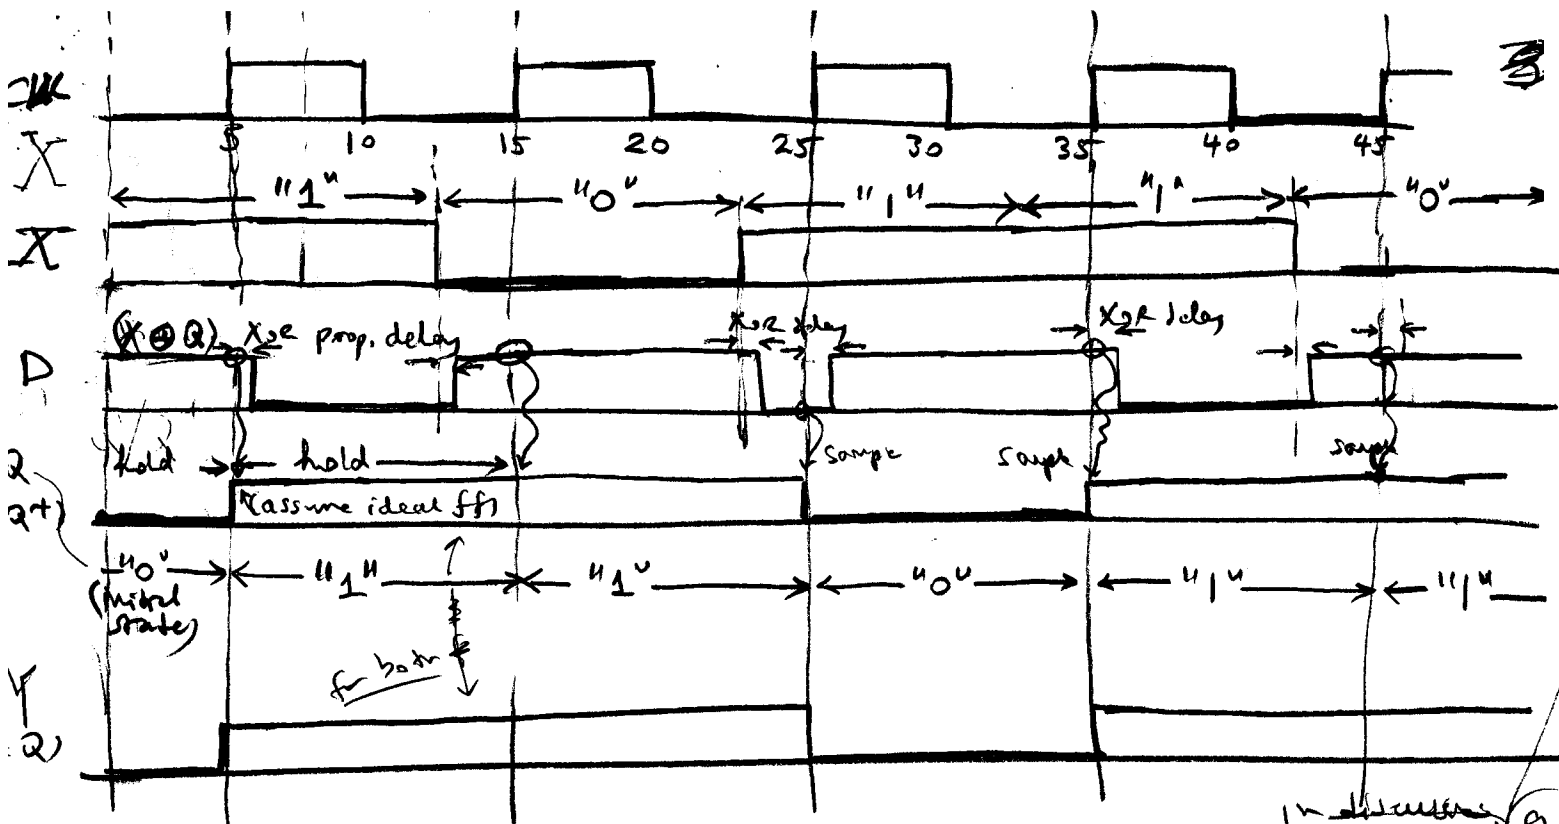 X
5 10 15 20 25 30 35 40 45
"1" "0" "1" "1" "0"
X
(X ⊕ Q) XOR prop. delay XOR delay XOR delay
D
hold hold sample sample sample
Q
Q+)
(assume ideal ff)
"0" "1" "1" "0" "1" "1"
(initial
state)
for both
Y
Q)